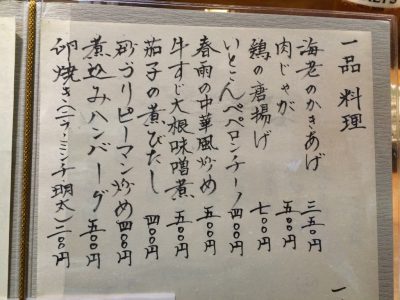 一品料理
海老のかきあげ 三五〇円
肉じゃが 五〇〇円
鶏の唐揚げ 七〇〇円
いとこんペペロンチーノ 四〇〇円
春雨の中華風炒め 五〇〇円
牛すじ大根味噌煮 五〇〇円
茄子の煮びたし 四〇〇円
砂ヅリピーマン炒め 四〇〇円
煮込みハンバーグ 五〇〇円
卵焼き(ニラ・ミンチ・明太) 三〇〇円
一